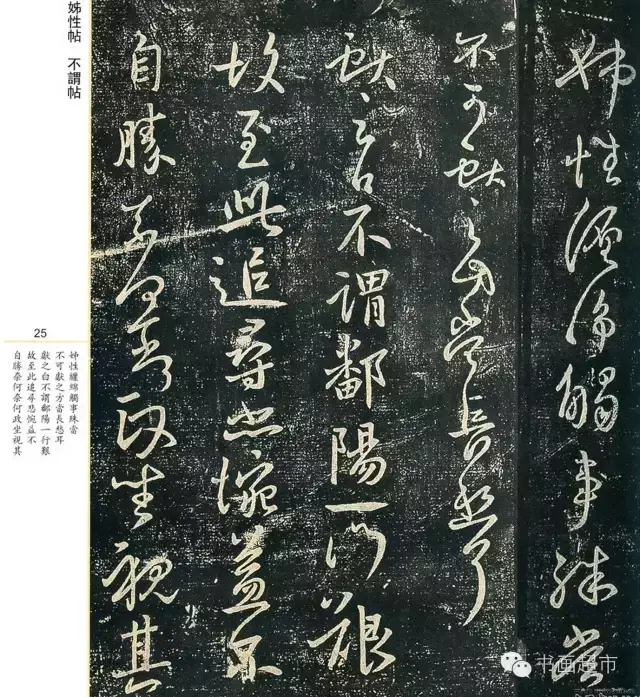 姊性纏綿觸事殊當
不可獻之方當長愁耳
獻之白不謂鄱陽一門艱
故至此追尋悲惋益不
自勝奈何奈何政坐視其
姊性帖 不謂帖
25
姊性纏綿觸事殊當
不可獻之方當長愁耳
獻之白不謂鄱陽一行艱
故至此追尋悲惋益不
自勝奈何奈何政坐視其
书画超市